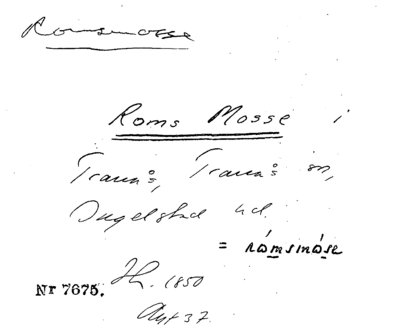 Romsmosse
Roms Mosse i
Tranås, Tranås sn,
Ingelstad hd.
= rómsmòse
Nr 7675. Jh. 1850
Akt 37